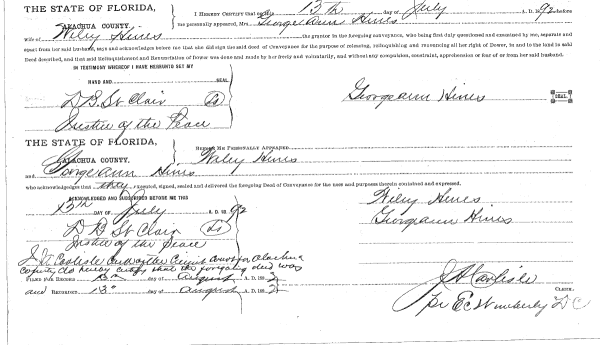 THE STATE OF FLORIDA,
ALACHUA COUNTY.
I HEREBY CERTIFY that on this 13th day of July A. D. 1892 before
me personally appeared, Mrs Georgeann Hines
Wife of Wiley Hines the grantor in the foregoing conveyance, who being first duly questioned and examined by me, separate and
apart from her said husband, says and acknowledges before me that she did sign the said deed of Conveyance for the purpose of releasing, relinquishing and renouncing all her right of Dower, in and to the land in said
Deed described, and that said Relinquishment and Renunciation of dower was done and made by her freely and voluntarily, and without any compulsion, constraint, apprehension or fear of or from her said husband.
IN TESTIMONY WHEREOF I HAVE HEREUNTO SET MY
HAND AND SEAL
D B St Clair (Ls)
Justice of the Peace
Georgeann Hines SEAL
THE STATE OF FLORIDA,
ALACHUA COUNTY.
BEFORE ME PERSONALLY APPEARED Wiley Hines
and Georgeann Hines
who acknowledges that they executed, signed, sealed and delivered the foregoing Deed of Conveyance for the uses and purposes therein contained and expressed.
ACKNOWLEDGED AND SUBSCRIBED BEFORE ME THIS
13th DAY OF July A. D. 1892
Wiley Hines
Georgeann Hines
D B St Clair (Ls)
Justice of the Peace
J. A. Carlisle Clerk of the Circuit Court for Alachua
County, do hereby certify that the foregoing deed was
FILED FOR RECORD 13" day of August A. D. 1892
and RECORDED 13" day of August A. D. 1892
J A Carlisle CLERK.
pr E C Wimberly D C